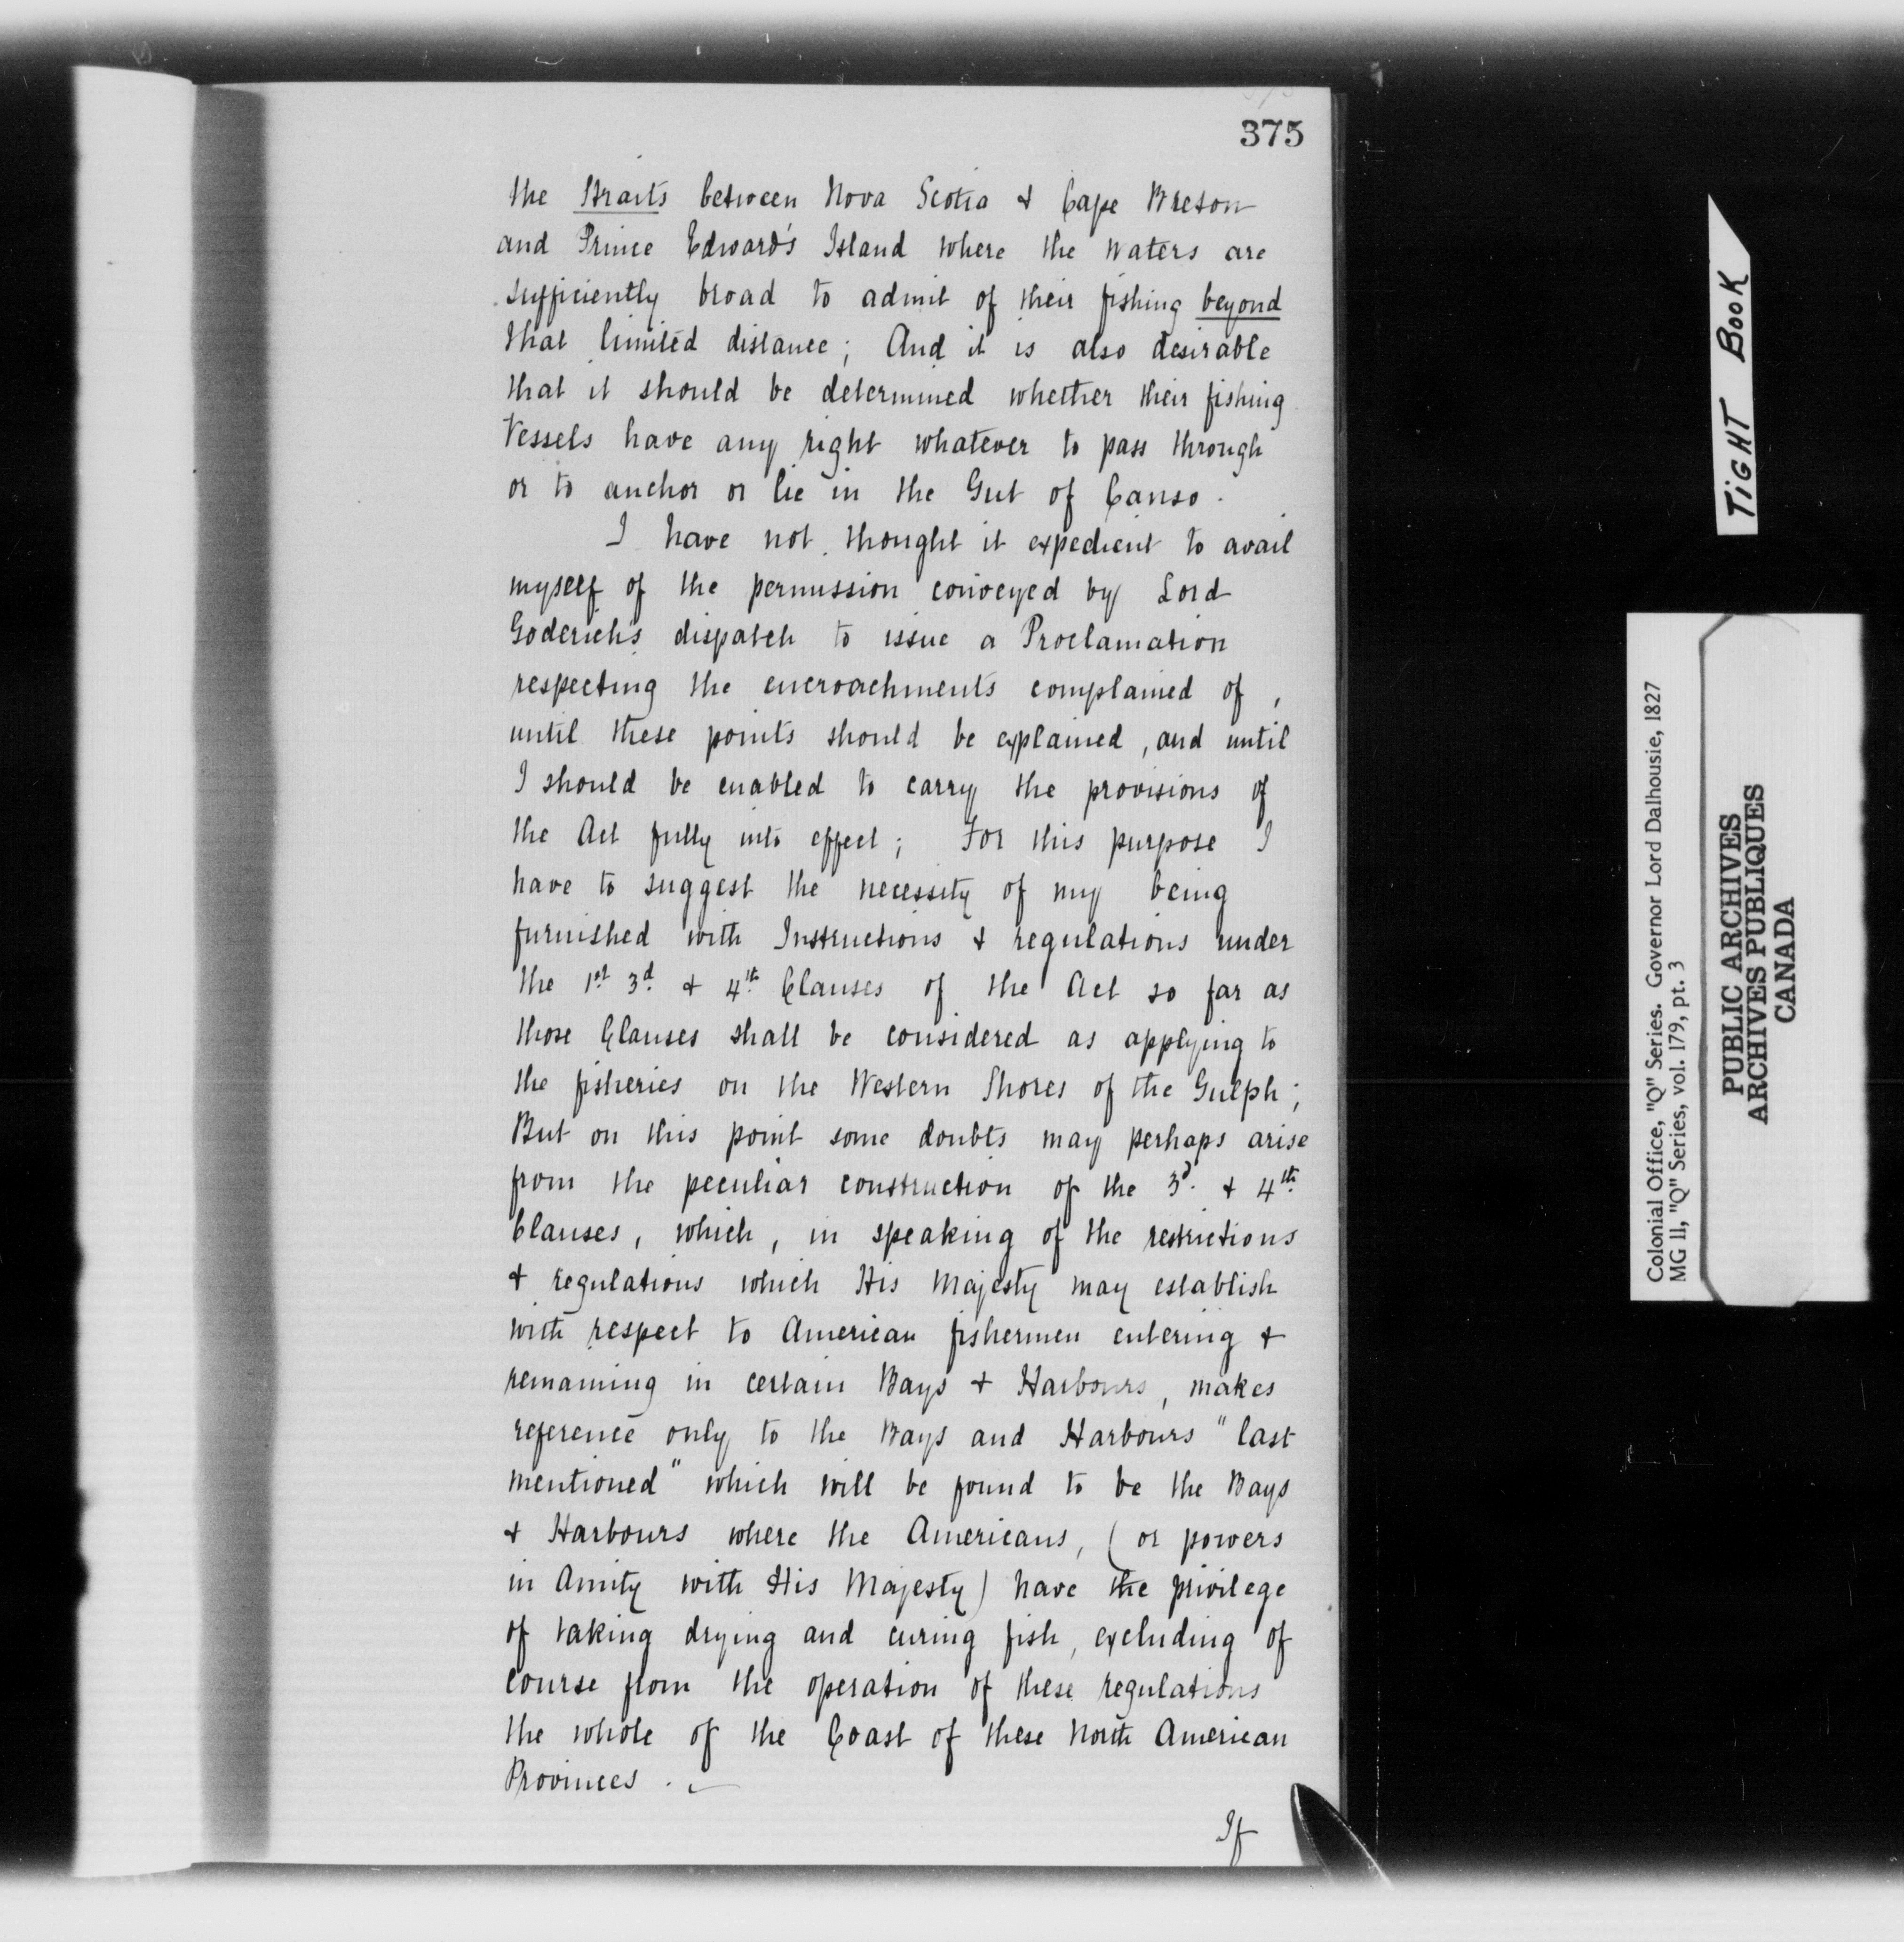 375
the Straits between Nova Scotia & Cape Breton
and Prince Edward's Island where the waters are
sufficiently broad to admit of their fishing beyond
that limited distance; And it is also desirable
that it should be determined whether their fishing
Vessels have any right whatever to pass through
or to anchor or lie in the Gut of Canso.
I have not thought it expedient to avail
myself of the permission conveyed by Lord
Goderich's dispatch to issue a Proclamation
respecting the encroachments complained of,
until these points should be explained, and until
I should be enabled to carry the provisions of
the Act fully into effect; For this purpose I
have to suggest the necessity of my being
furnished with Instructions & regulations under
the 1st. 3d. & 4th. Clauses of the Act so far as
those Clauses shall be considered as applying to
the fisheries on the Western Shores of the Gulph;
But on this point some doubts may perhaps arise
from the peculiar construction of the 3d. & 4th.
Clauses, which, in speaking of the restrictions
& regulations which His Majesty may establish
with respect to American fishermen entering &
remaining in certain Bays & Harbours, makes
reference only to the Bays and Harbours "last
mentioned" which will be found to be the Bays
& Harbours where the Americans, (or powers
in Amity with His Majesty) have the privilege
of taking drying and curing fish, excluding of
course from the operation of these regulations
the whole of the Coast of these North American
Provinces.
If
TIGHT BOOK
Colonial Office, "Q" Series. Governor Lord Dalhousie, 1827
MG 11, "Q" Series, vol. 179, pt. 3
PUBLIC ARCHIVES
ARCHIVES PUBLIQUES
CANADA